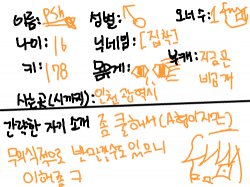 이름: PSh 성별: 오너수: 1
나이: 16 닉네임: [집착]
키: 178 몸무게: 부캐: 지금은 비공개
사는곳(시까지): 인천 광역시
간략한 자기 소개 좀 쿨해서 (A형이지만)
무의식적으로 반말할수도 있으니
이해좀 ㅋ